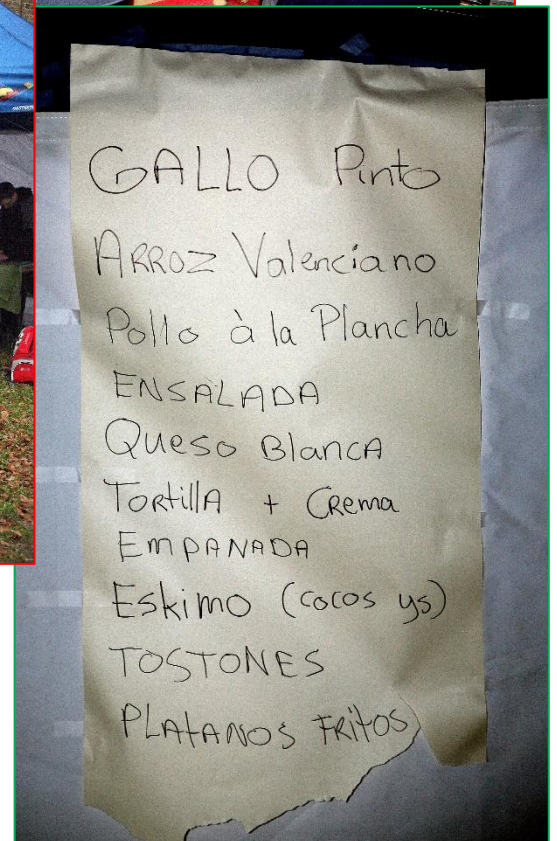 GALLO Pinto
ARROZ Valenciano
Pollo à la Plancha
ENSALADA
Queso BlancA
TORtillA + CRema
EMPANADA
Eskimo (cocos ys)
TOSTONES
PLAtANOS FRitOS